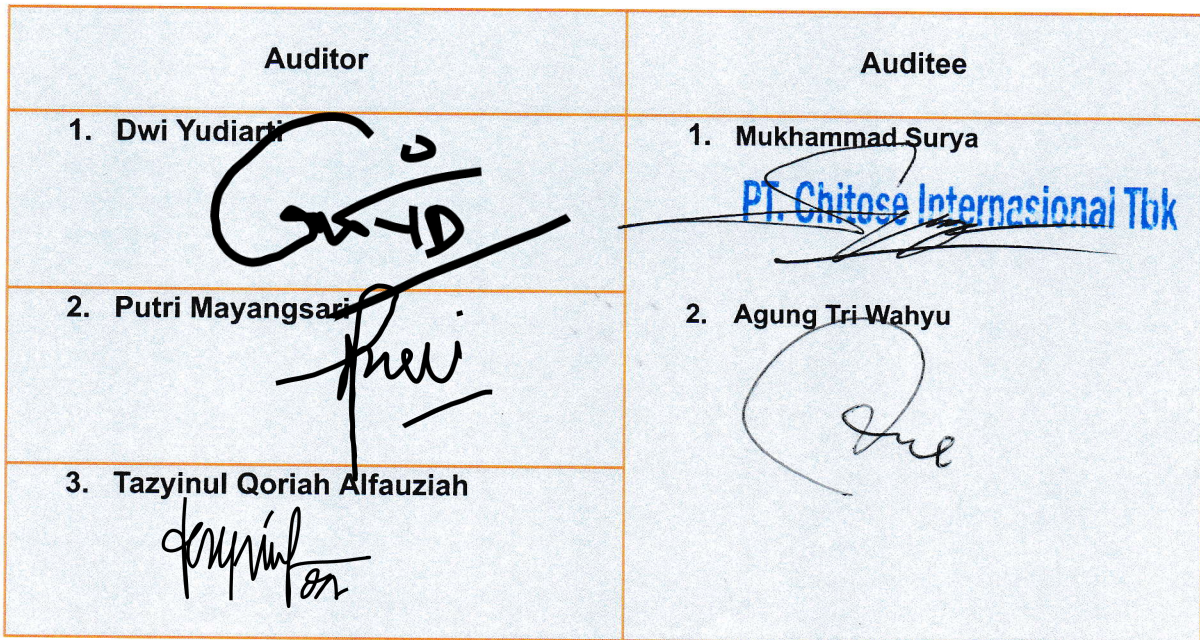 Auditor
Auditee
1. Dwi Yudiarti
1. Mukhammad Surya
PT. Chitose Internasional Tbk
2. Putri Mayangsari
2. Agung Tri Wahyu
3. Tazyinul Qoriah Alfauziah